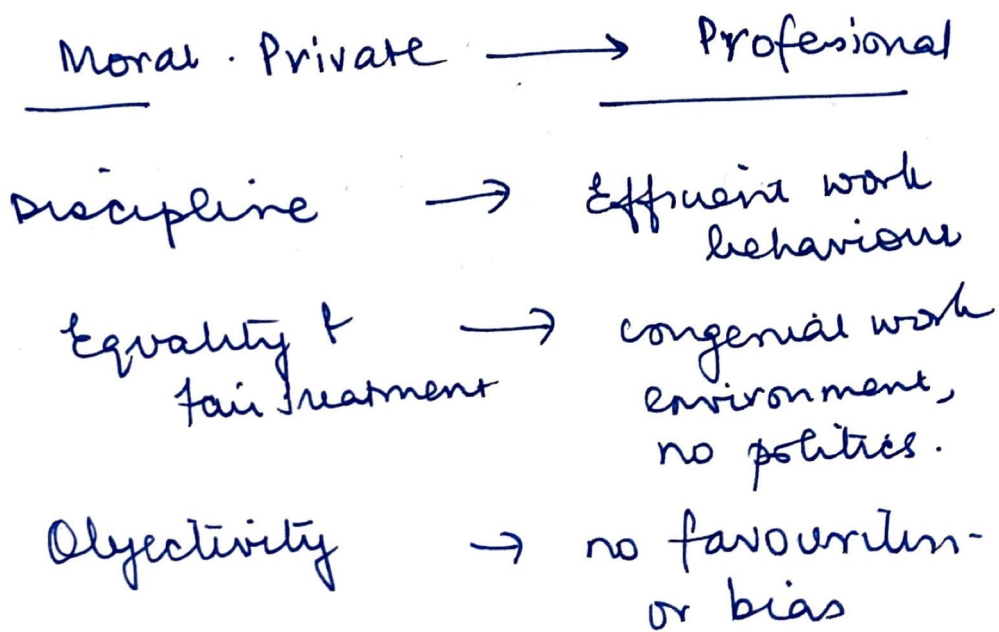 Moral . Private → Profesional
Discipline → Efficient work
behaviour
Equality &
fair treatment → congenial work
environment,
no politics.
Objectivity → no favouritism-
or bias